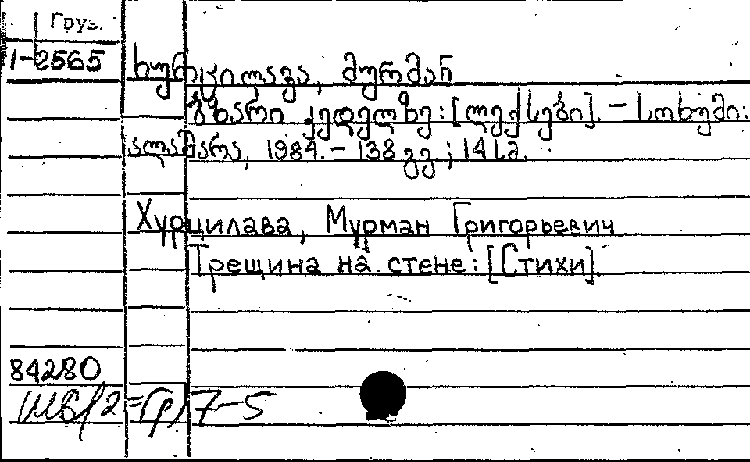 Груз.
1-2565
ხურცილავა, მურმან
ბზარი კედელზე: [ლექსები]. – სოხუმი:
ალაშარა, 1984. – 138 გვ; 14 სმ.
Хурцилава, Мурман Григорьевич
Трещина на стене: [Стихи].
84280
Ш6(2=Гр)7-5